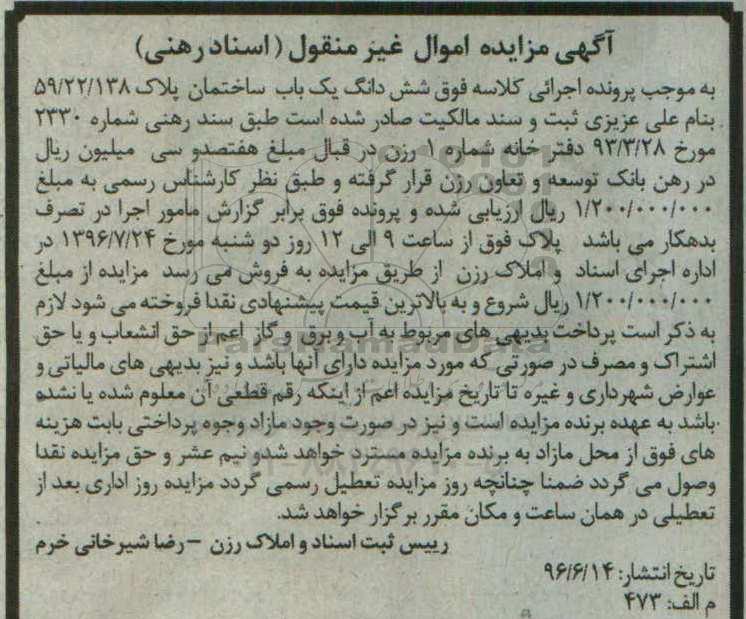 آگهی مزایده اموال غیر منقول (اسناد رهنی)
به موجب پرونده اجرائی کلاسه فوق شش دانگ یک باب ساختمان پلاک ۵۹/۲۲/۱۳۸
بنام علی عزیزی ثبت و سند مالکیت صادر شده است طبق سند رهنی شماره ۲۳۳۰
مورخ ۹۳/۳/۲۸ دفتر خانه شماره ۱ رزن در قبال مبلغ هفتصدو سی میلیون ریال
در رهن بانک توسعه و تعاون رزن قرار گرفته و طبق نظر کارشناس رسمی به مبلغ
۱/۲۰۰/۰۰۰/۰۰۰ ریال ارزیابی شده و پرونده فوق برابر گزارش مامور اجرا در تصرف
بدهکار می باشد پلاک فوق از ساعت ۹ الی ۱۲ روز دو شنبه مورخ ۱۳۹۶/۷/۲۴ در
اداره اجرای اسناد و املاک رزن از طریق مزایده به فروش می رسد مزایده از مبلغ
۱/۲۰۰/۰۰۰/۰۰۰ ریال شروع و به بالاترین قیمت پیشنهادی نقدا فروخته می شود لازم
به ذکر است پرداخت بدیهی های مربوط به آب و برق و گاز اعم از حق انشعاب و یا حق
اشتراک و مصرف در صورتی که مورد مزایده دارای آنها باشد و نیز بدیهی های مالیاتی و
عوارض شهرداری و غیره تا تاریخ مزایده اعم از اینکه رقم قطعی آن معلوم شده یا نشده
باشد به عهده برنده مزایده است و نیز در صورت وجود مازاد وجوه پرداختی بابت هزینه
های فوق از محل مازاد به برنده مزایده مسترد خواهد شدو نیم عشر و حق مزایده نقدا
وصول می گردد ضمنا چنانچه روز مزایده تعطیل رسمی گردد مزایده روز اداری بعد از
تعطیلی در همان ساعت و مکان مقرر برگزار خواهد شد.
رییس ثبت اسناد و املاک رزن – رضا شیرخانی خرم
تاریخ انتشار: ۹۶/۶/۱۴
م الف: ۴۷۳
ParsNamadData